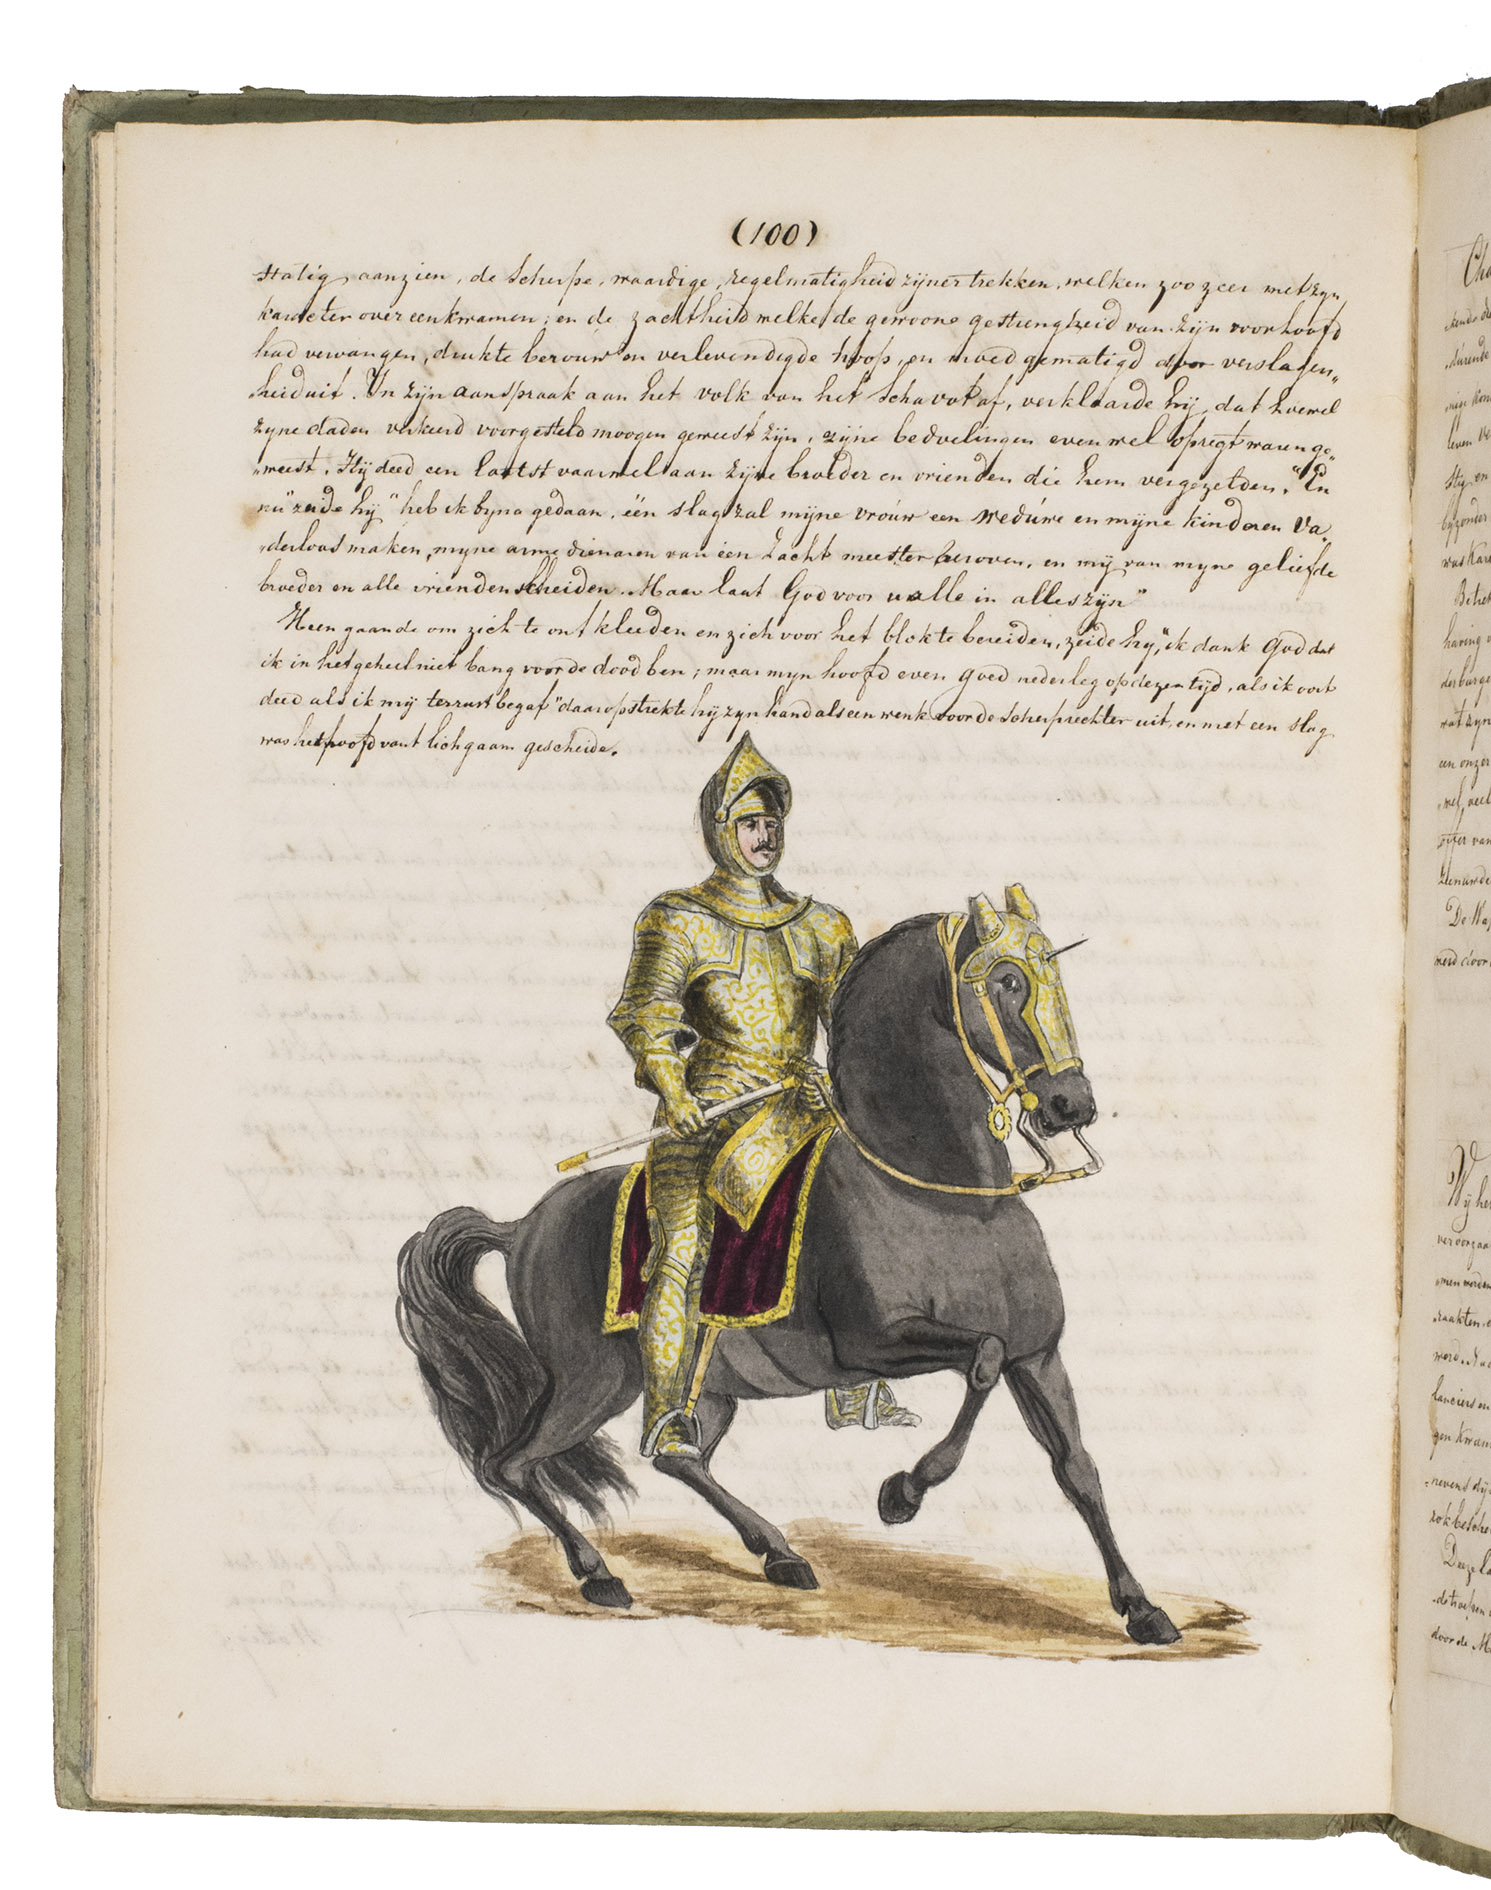 (100)
statig aanzien, de scherpe, waardige, regelmatigheid zijner trekken, welken zoo zeer met zyn
karakter over eenkwamen; en de zachtheid welke de gewoone gestrengheid van zijn voorhoofd
had vervangen, drukte berouw en verlevendigde hoop, en moed gematigd door verslagen„
„heid uit. In zijn aanspraak aan het volk van het schavot af, verklaarde hij, dat hoewel
zyne daden verkeerd voorgesteld moogen geweest zijn, zijne bedoelingen evenwel opregt waren ge„
„weest. Hij deed een laatst vaarwel aan zijne broeder en vrienden die hem vergezelden. "En
nu" zeide hij "heb ik byna gedaan, één slag zal mijne vrouw een weduwe en mijne kinderen va„
„derloos maken, myne arme dienaren van één zacht meester berooven, en mij van myne geliefde
broeder en alle vrienden scheiden. Maar laat God voor u alle in alles zijn"
Heen gaande om zich te ontkleeden en zich voor het blok te bereiden, zeide hy, "ik dank God dat
ik in het geheel niet bang voor de dood ben; maar myn hoofd even goed nederleg op dezen tijd, als ik ooit
deed als ik mij ter rust begaf" daarop strekte hij zyn hand als een wenk voor de scherprechter uit, en met een slag
was het hoofd van't lichgaam gescheide.
Betrek
haring
een onzer
De Wap
werd door
Wij he
lanciers en
nevens
door de